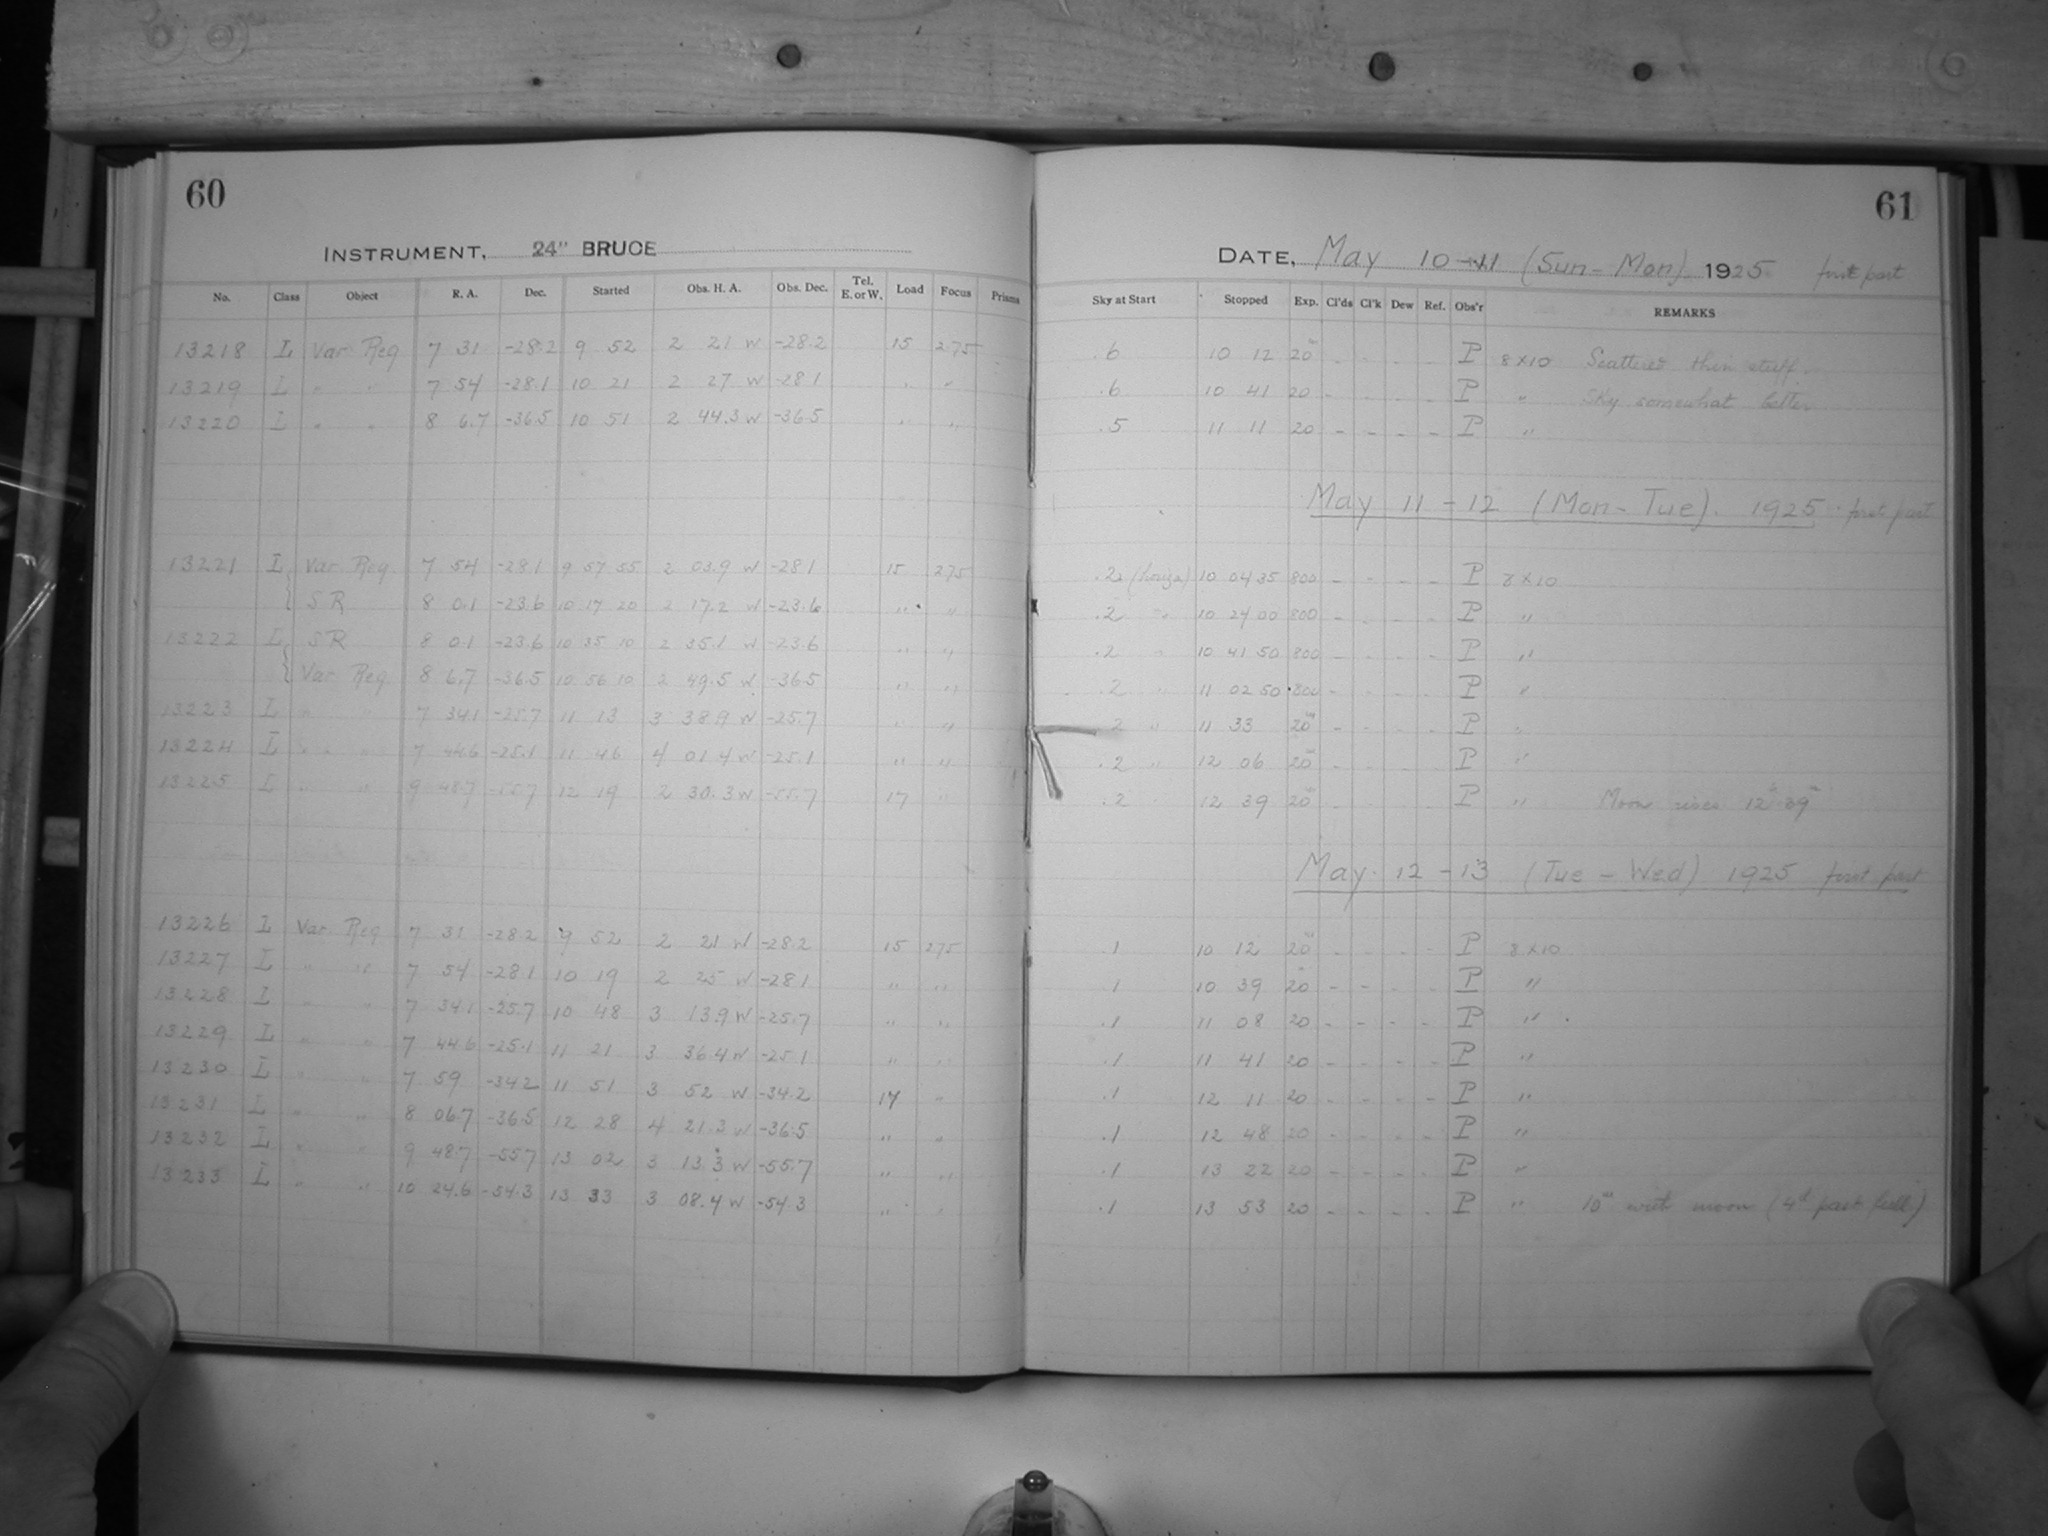 60
INSTRUMENT, 24" BRUCE
No. Class Object R. A. Dec. Started Obs. H. A. Obs. Dec. Tel. E. or W. Load Focus Prisms
13218 L Var Reg 7 31 -28.2 9 52 2 21 W -28.2 15 2.75
13219 L " " 7 54 -28.1 10 21 2 27 W -28.1 " "
13220 L " " 8 6.7 -36.5 10 51 2 44.3 W -36.5 " "
13221 L Var Reg 7 54 -28.1 9 57 55 2 03.9 W -28.1 15 2.75
SR 8 0.1 -23.6 10 17 20 2 17.2 W -23.6 " "
13222 L SR 8 0.1 -23.6 10 35 10 2 35.1 W -23.6 " "
Var Reg 8 6.7 -36.5 10 56 10 2 49.5 W -36.5 " "
13223 L " " 7 34.1 -25.7 11 13 3 38.9 W -25.7 " "
13224 L " " 7 44.6 -25.1 11 46 4 01.4 W -25.1 " "
13225 L " " 9 48.7 -55.7 12 19 2 30.3 W -55.7 17 "
13226 L Var Reg 7 31 -28.2 9 52 2 21 W -28.2 15 2.75
13227 L " " 7 54 -28.1 10 19 2 25 W -28.1 " "
13228 L " " 7 34.1 -25.7 10 48 3 13.9 W -25.7 " "
13229 L " " 7 44.6 -25.1 11 21 3 36.4 W -25.1 " "
13230 L " " 7 59 -34.2 11 51 3 52 W -34.2 17 "
13231 L " " 8 06.7 -36.5 12 28 4 21.3 W -36.5 " "
13232 L " " 9 48.7 -55.7 13 02 3 13.3 W -55.7 " "
13233 L " " 10 24.6 -54.3 13 33 3 08.4 W -54.3 " "
61
DATE, May 10-11 (Sun-Mon) 1925 first part
Sky at Start Stopped Exp. Cl'ds Cl'k Dew Ref. Obs'r REMARKS
.6 10 12 20m - - - - P 8x10 Scattered thin stuff.
.6 10 41 20 - - - - P " Sky somewhat better
.5 11 11 20 - - - - P "
May 11-12 (Mon-Tue). 1925 first part
.2 10 04 35 800 - - - - P 8x10
.2 " 10 24 00 800 - - - - P "
.2 " 10 41 50 800 - - - - P "
.2 " 11 02 50 800 - - - - P "
.2 " 11 33 20m - - - - P "
.2 " 12 06 20m - - - - P "
.2 12 39 20m - - - - P " Moon rises 12h 39m
May 12-13 (Tue-Wed) 1925 first part
.1 10 12 20m - - - - P 8x10
.1 10 39 20 - - - - P "
.1 11 08 20 - - - - P "
.1 11 41 20 - - - - P "
.1 12 11 20 - - - - P "
.1 12 48 20 - - - - P "
.1 13 22 20 - - - - P "
.1 13 53 20 - - - - P " 10m with moon (4d past full)